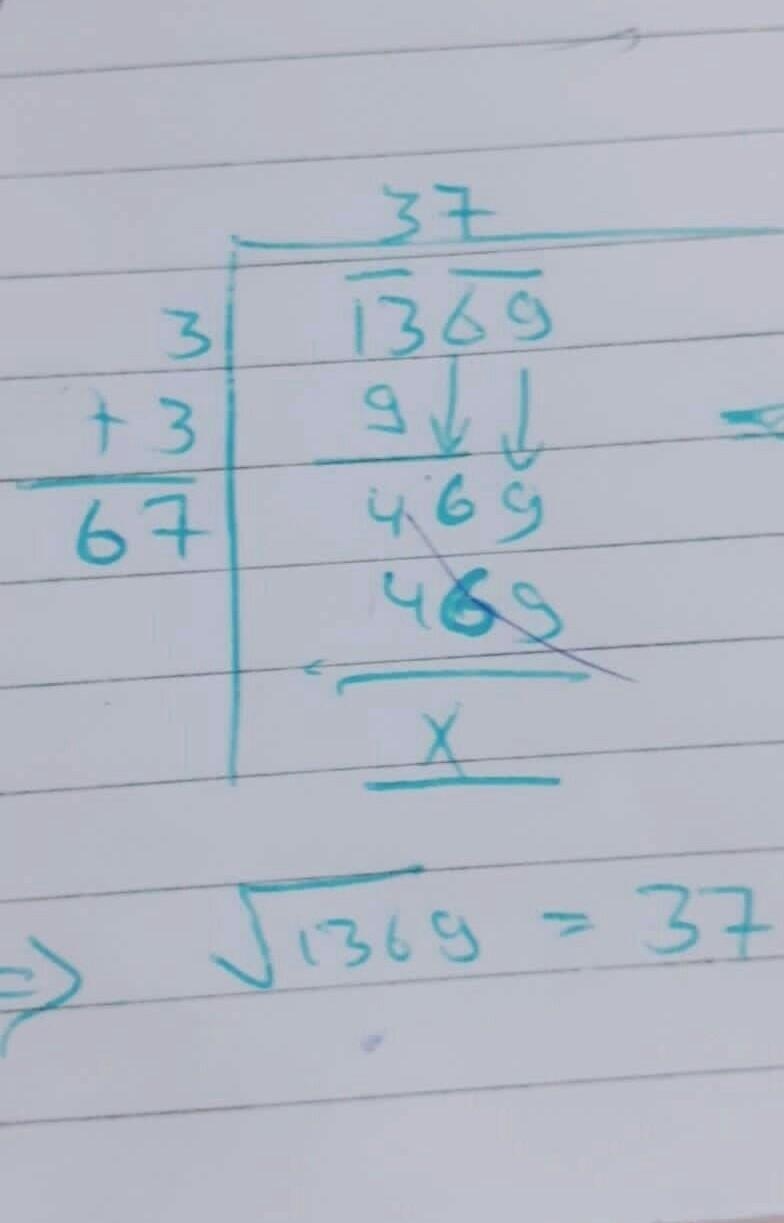 37
3 1369
+ 3 9 ↓ ↓
67 469
469
x
⇒ √1369 = 37